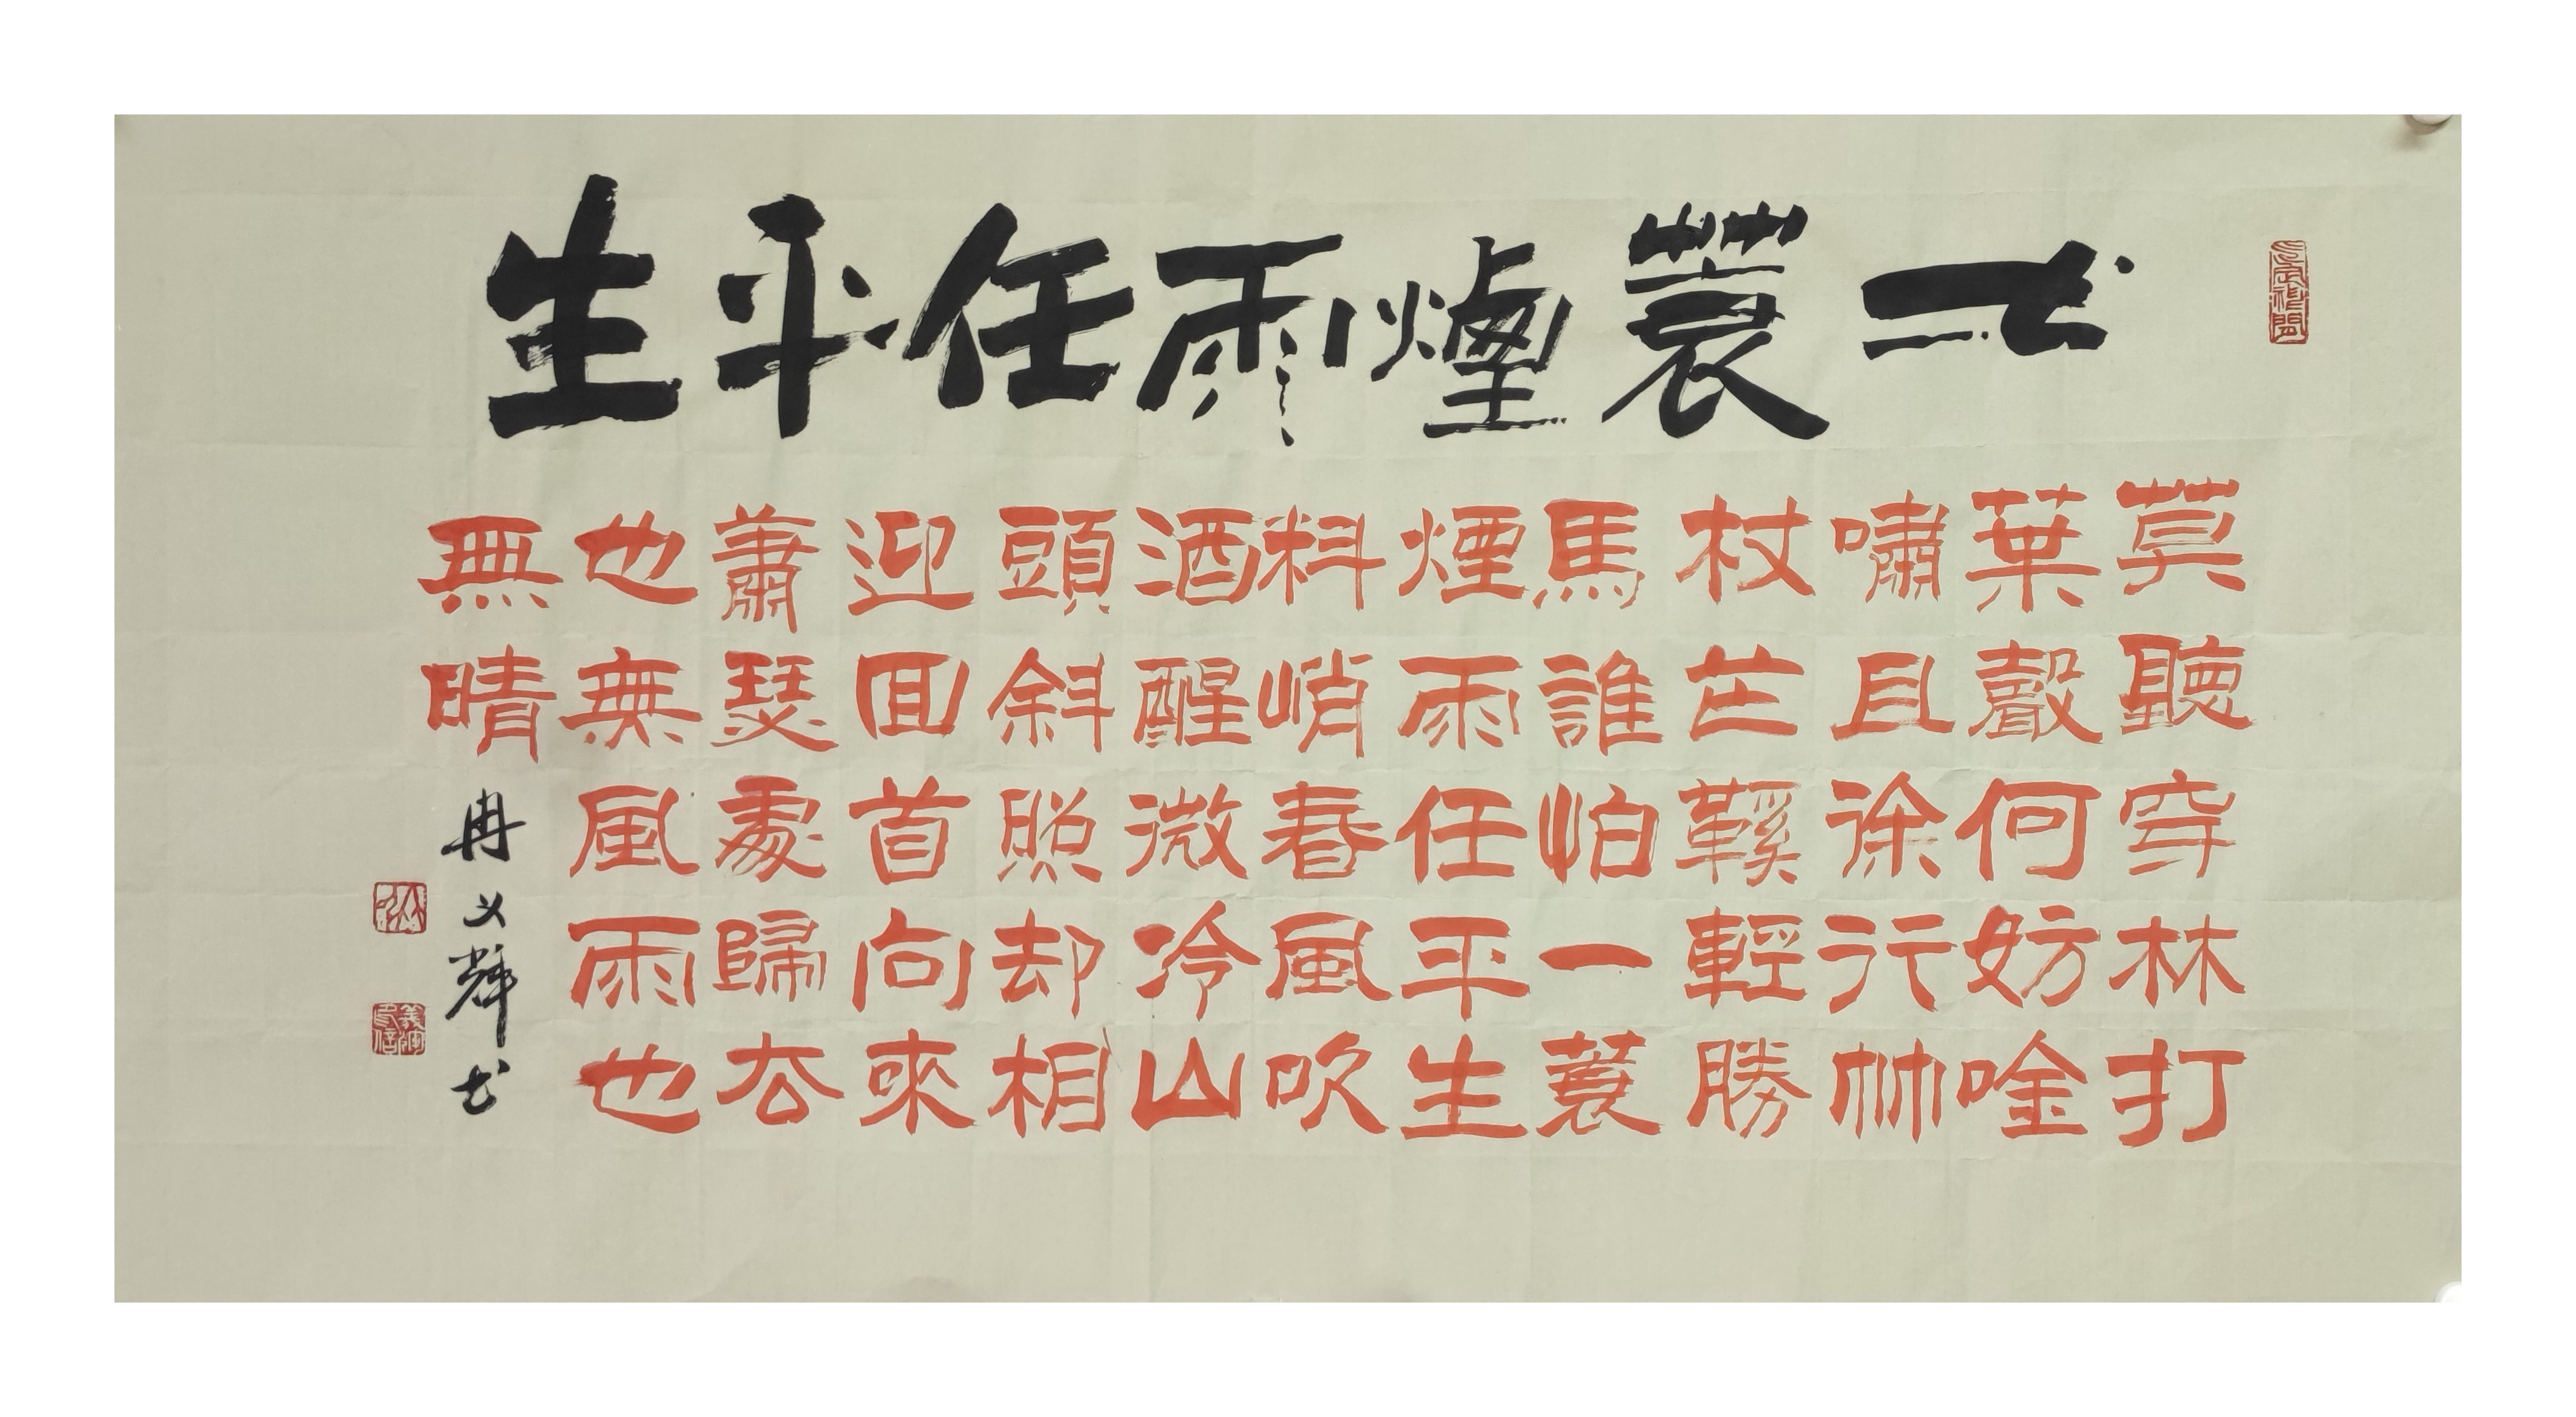 弌蓑煙雨任平生
莫聽穿林打
葉聲何妨唫
嘯且徐行竹
杖芒鞵輕勝
馬誰怕一蓑
煙雨任平生
料峭春風吹
酒醒微冷山
頭斜照却相
迎回首向來
蕭瑟處歸去
也無風雨也
無晴
冉义輝书